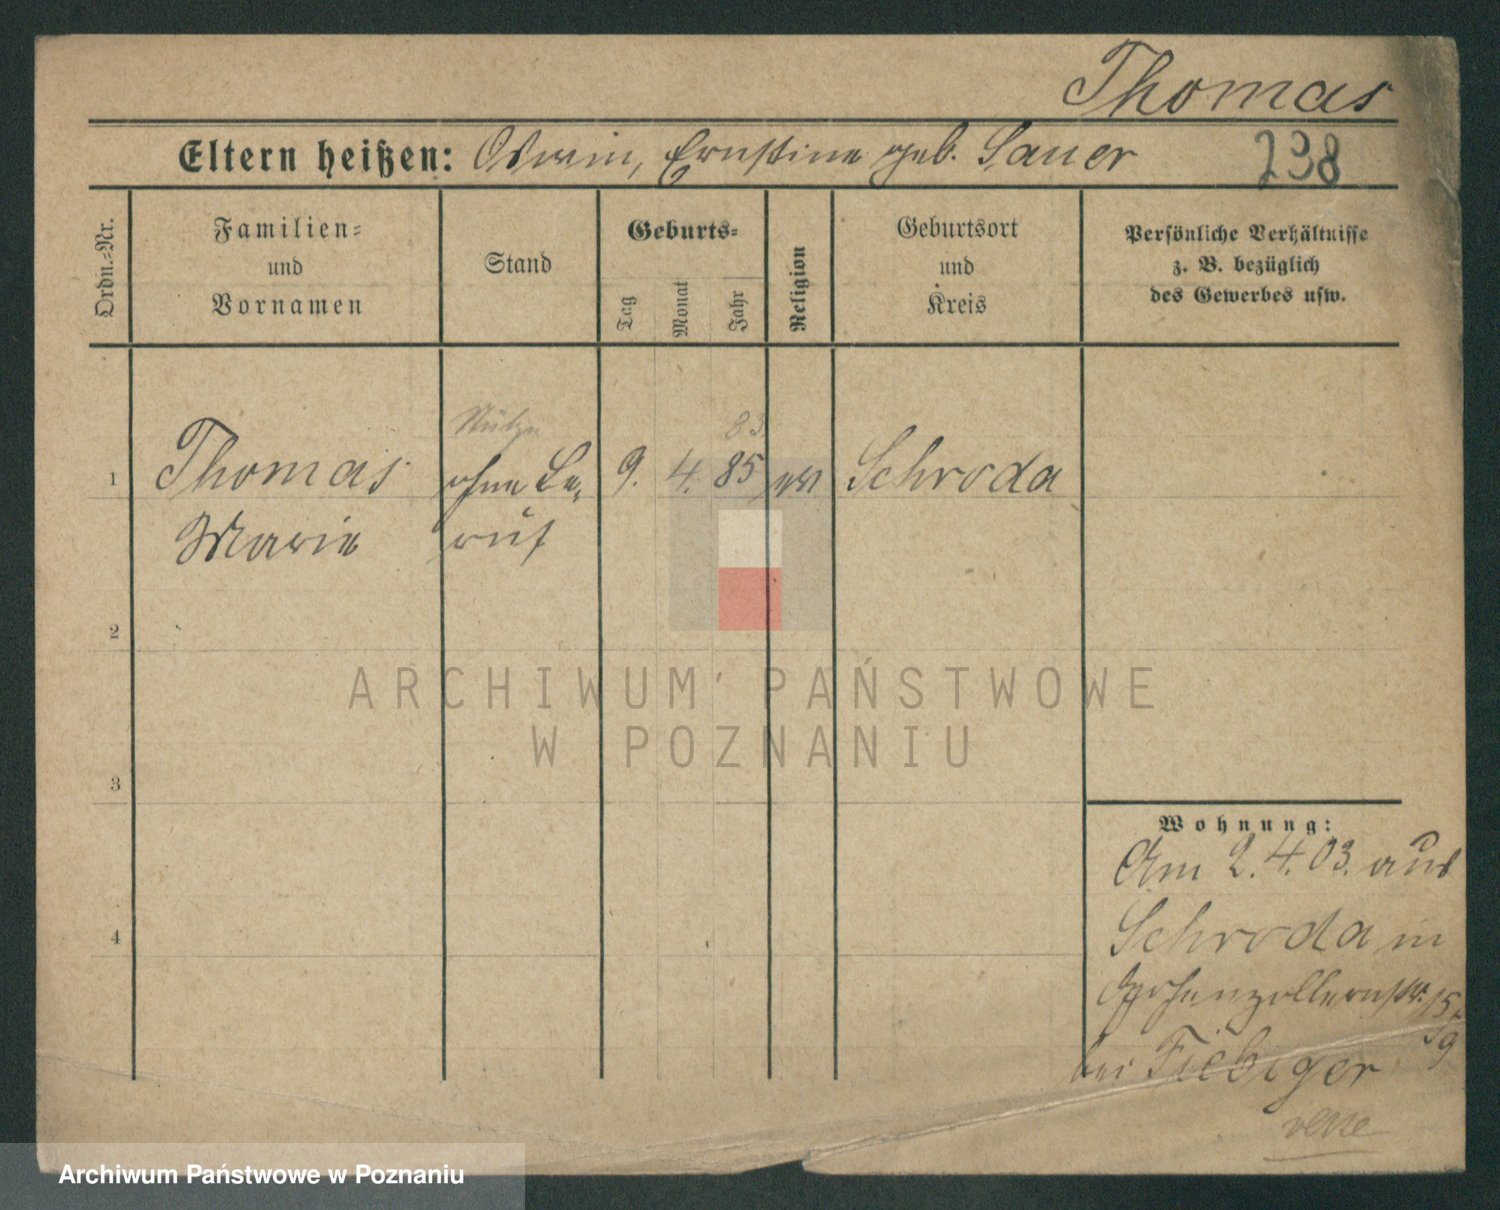 Thomas
Eltern heißen: Ernstine geb. Sauer
238
Ordn.=Nr.
Familien=
und
Vornamen
Stand
Geburts=
Tag
Monat
Jahr
Religion
Geburtsort
und
Kreis
Persönliche Verhältnisse
z. B. bezüglich
des Gewerbes usw.
Stütze
83
1 Thomas ohne Be= 9. 4. 85 ev Schroda
Marie ruf
2
ARCHIWUM PAŃSTWOWE
W POZNANIU
3
Wohnung:
Am 2.4.03. aus
4
Schroda in
Hohenzollernstr. 15
bei Fiebiger
Archiwum Państwowe w Poznaniu